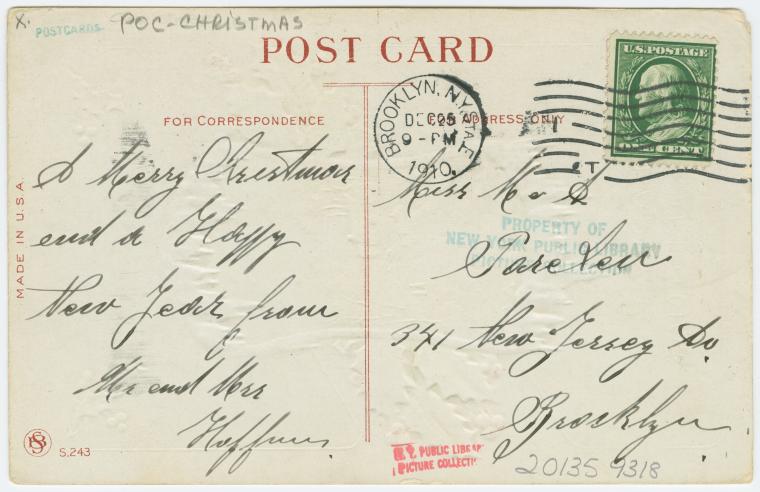 X.
POSTCARDS
POC-CHRISTMAS
POST CARD
FOR CORRESPONDENCE
FOR ADDRESS ONLY
BROOKLYN, N.Y. STA. E
DEC 25
9-PM
1910
U.S. POSTAGE
ONE CENT
A Merry Crestmas
end a Happy
New Jear from
Mr end Mrs
Miss M
PROPERTY OF
NEW YORK PUBLIC LIBRARY
PICTURE COLLECTION
341 New Jersey Av
Brocklyn
MADE IN U.S.A.
S.243
N.Y. PUBLIC LIBRARY
PICTURE COLLECTION
20135 9318